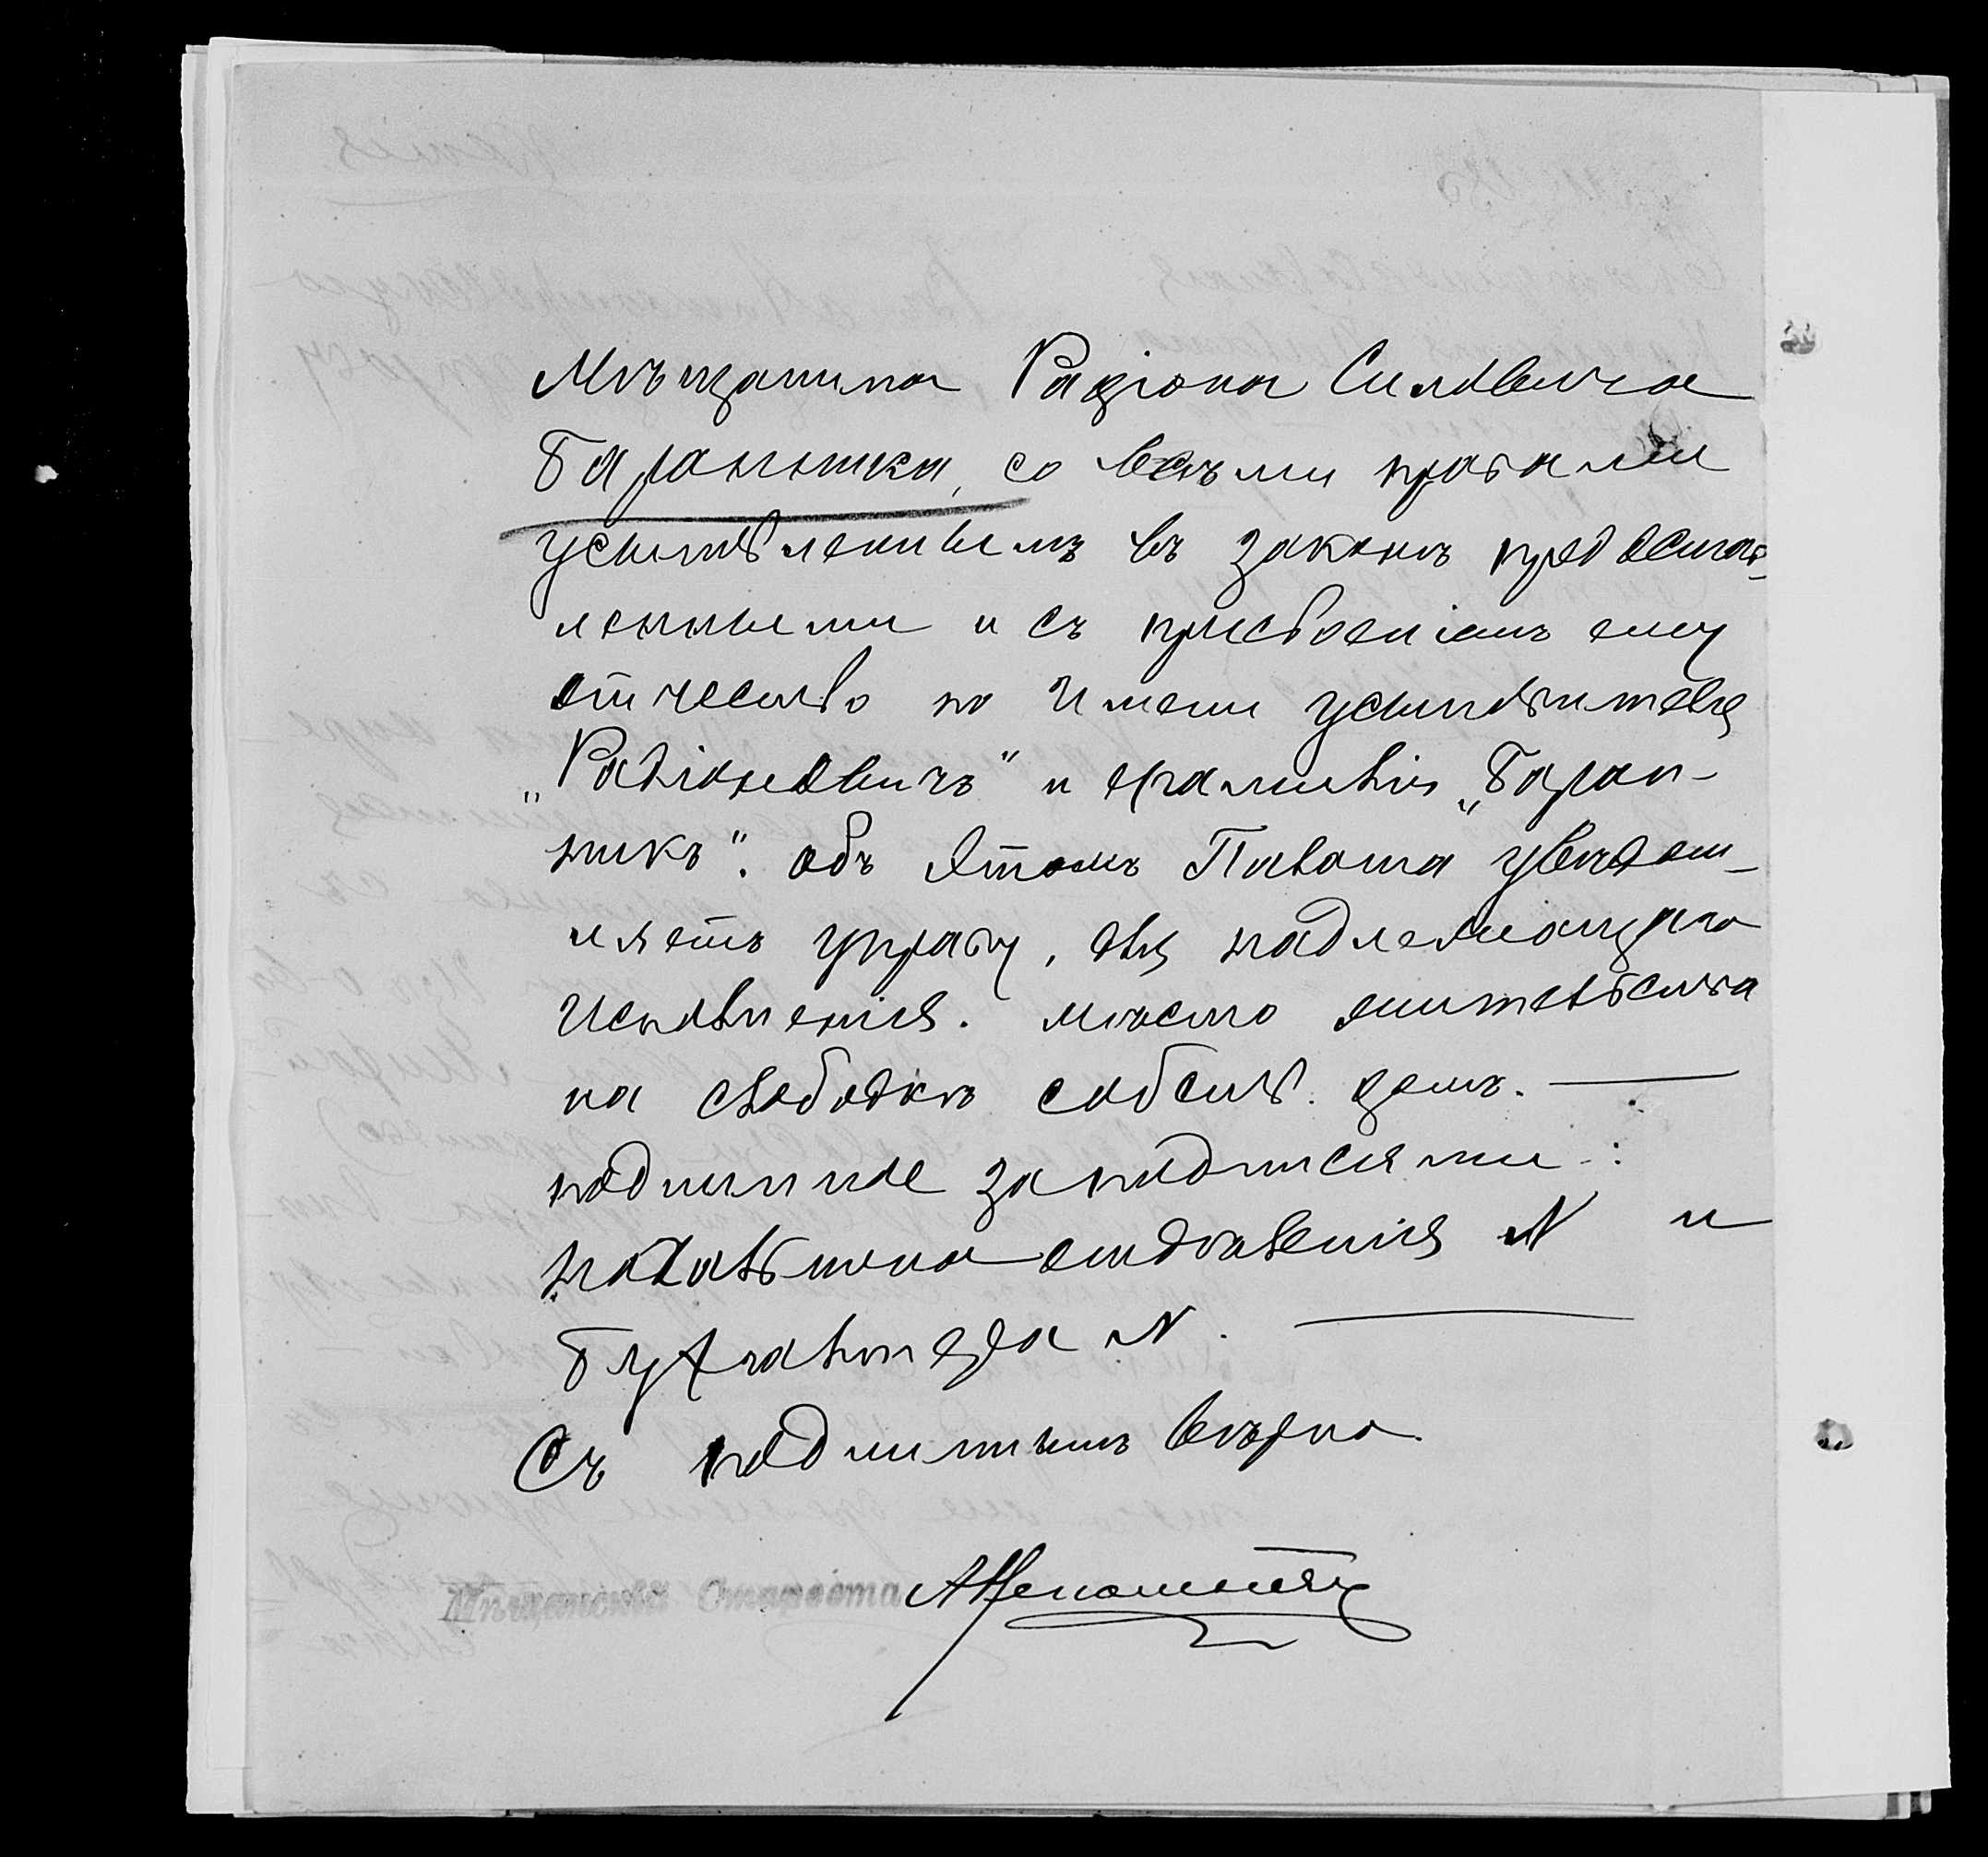 Мѣщанина Радіона Силовича
Баранника, со всѣми правами
усыновленнымъ въ законѣ предостав-
ленными и съ присвоеніемъ ему
отчество по имени усыновителя
„Радіоновичъ" и фамиліи „Баран-
никъ". объ этомъ Палата увѣдом-
ляетъ управу, для надлежащаго
исполненія. мѣсто жительства
на слободкѣ собств. домъ. —
подлинное за подписями:
начальника отдѣленія N и
Бухгалтера N. —
Съ подлиннымъ вѣрно.
Мѣщанскій Староста